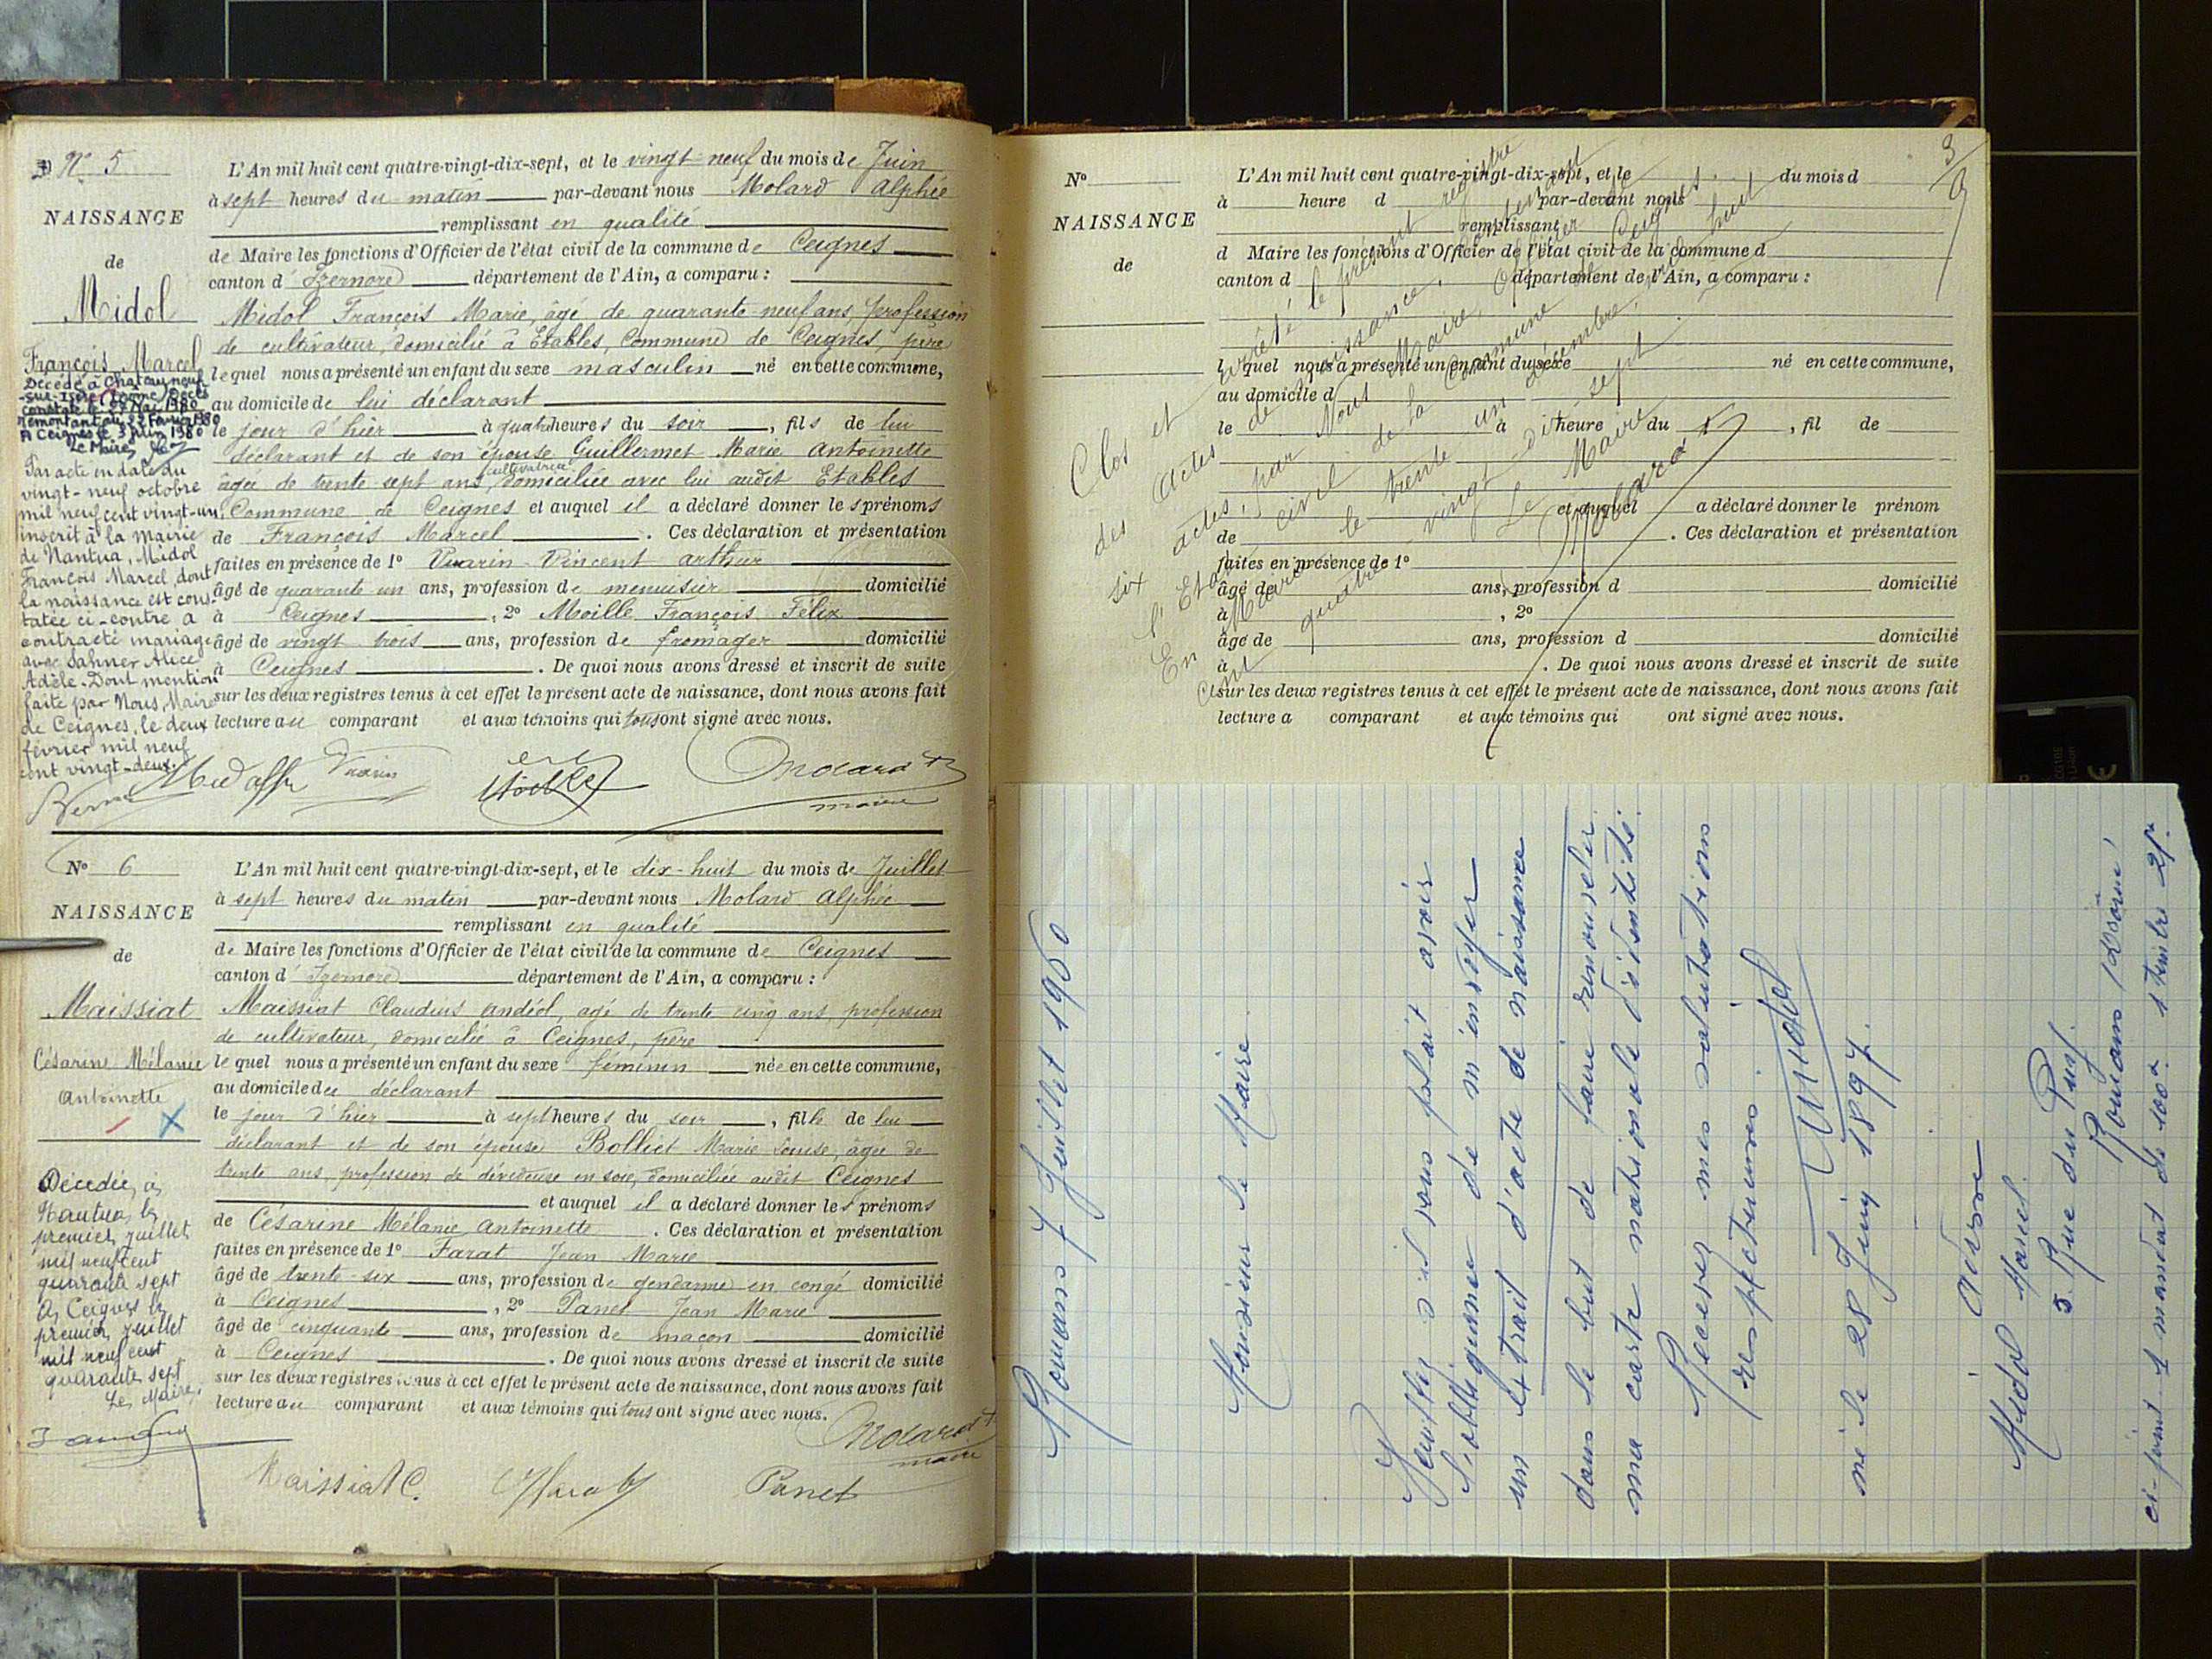 N° 5
NAISSANCE
de
Midol
François Marcel
Décédé à Chateauneuf
-sur-Isère (Drôme) Décès
constaté le 27 Mai 1980
remontant au 22 Février 1980
A Ceignes le 3 Juin 1980
Le Maire,
Par acte en date du
vingt-neuf octobre
mil neuf cent vingt-un
inscrit à la mairie
de Nantua, Midol
François Marcel, dont
la naissance est cons-
tatée ci-contre a
contracté mariage
avec Sahner Alice
Adèle. Dont mention
faite par Nous, Maire
de Ceignes, le deux
février mil neuf
cent vingt-deux.
L'An mil huit cent quatre-vingt-dix-sept, et le vingt neuf du mois de Juin
à sept heures du matin par-devant nous Molard Alphée
remplissant en qualité
de Maire les fonctions d'Officier de l'état civil de la commune de Ceignes
canton d' Izernore département de l'Ain, a comparu :
Midol François Marie, âgé de quarante neuf ans, profession
de cultivateur, domicilié à Etables, Commune de Ceignes, père
lequel nous a présenté un enfant du sexe masculin né en cette commune,
au domicile de lui déclarant
le jour d'hier à quatre heures du soir, fils de lui
déclarant et de son épouse Guillermet Marie Antoinette
âgée de trente sept ans, cultivatrice domiciliée avec lui audit Etables
Commune de Ceignes et auquel il a déclaré donner les prénoms
de François Marcel. Ces déclaration et présentation
faites en présence de 1° Vuarin Vincent arthur
âgé de quarante un ans, profession de menuisier domicilié
à Ceignes, 2° Moille François Félix
âgé de vingt trois ans, profession de fromager domicilié
à Ceignes. De quoi nous avons dressé et inscrit de suite
sur les deux registres tenus à cet effet le présent acte de naissance, dont nous avons fait
lecture au comparant et aux témoins qui tous ont signé avec nous.
Vuarin
Molard
maire
N° 6
NAISSANCE
de
Maissiat
Césarine Mélanie
Antoinette
Décédée, à
Nantua, le
premier juillet
mil neuf cent
quarante sept
A Ceignes le
premier juillet
mil neuf cent
quarante sept
Le Maire,
L'An mil huit cent quatre-vingt-dix-sept, et le dix-huit du mois de Juillet
à sept heures du matin par-devant nous Molard Alphée
remplissant en qualité
de Maire les fonctions d'Officier de l'état civil de la commune de Ceignes
canton d' Izernore département de l'Ain, a comparu :
Maissiat Claudius Andéol, agé de trente cinq ans, profession
de cultivateur, domicilié à Ceignes, père
lequel nous a présenté un enfant du sexe féminin née en cette commune,
au domicile du déclarant
le jour d'hier à sept heures du soir, fille de lui
déclarant et de son épouse Bolliet Marie Louise, âgée de
trente ans, profession de dévideuse en soie, domiciliée audit Ceignes
et auquel il a déclaré donner les prénoms
de Césarine Mélanie Antoinette. Ces déclaration et présentation
faites en présence de 1° Farat Jean Marie
âgé de trente-six ans, profession de gendarme en congé domicilié
à Ceignes, 2° Panet Jean Marie
âgé de cinquante ans, profession de maçon domicilié
à Ceignes. De quoi nous avons dressé et inscrit de suite
sur les deux registres tenus à cet effet le présent acte de naissance, dont nous avons fait
lecture au comparant et aux témoins qui tous ont signé avec nous.
Molard
maire
Maissiat C.
Farat
Panet
3
N°
NAISSANCE
de
L'An mil huit cent quatre-vingt-dix-sept, et le du mois d
à heure d par-devant nous
remplissant
d Maire les fonctions d'Officier de l'état civil de la commune d
canton d département de l'Ain, a comparu :
lequel nous a présenté un enfant du sexe né en cette commune,
au domicile d
le à heure du, fil de
et auquel a déclaré donner le prénom
de. Ces déclaration et présentation
faites en présence de 1°
âgé de ans, profession d domicilié
à, 2°
âgé de ans, profession d domicilié
à. De quoi nous avons dressé et inscrit de suite
sur les deux registres tenus à cet effet le présent acte de naissance, dont nous avons fait
lecture a comparant et aux témoins qui ont signé avec nous.
Clos et arrêté le présent registre
des actes de naissance,
six actes, par Nous Maire, Officier de
l'Etat civil de la Commune de Ceignes
En Mairie le trente un décembre mil huit
cent quatre vingt dix sept.
Le Maire
Molard
Romans 7 Juillet 1960
Monsieur le Maire
Veuillez s'il vous plait avoir
l'obligeance de m'envoyer
un extrait d'acte de naissance
dans le but de faire renouveler
ma carte nationale d'identité.
Recevez mes salutations
respectueuses.
Midol
né le 28 Juin 1897.
Adresse
Midol Marcel.
5 Rue du Puy.
Romans (Drôme)
ci-joint 1 mandat de 100 1 timbre